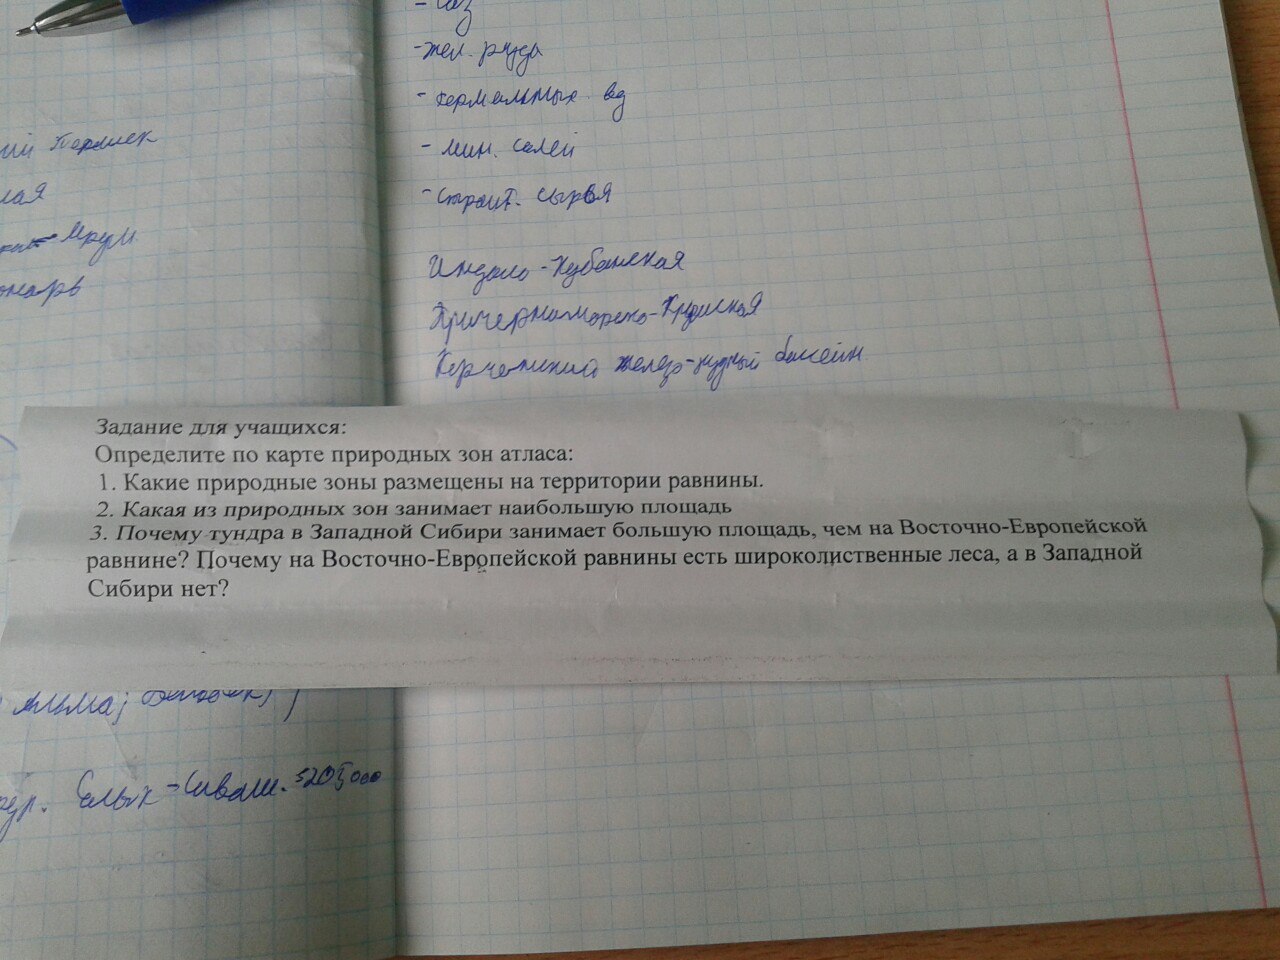 - газ
- жел. руда
- термальных вод
- мин. солей
- строит. сырья
Индоло-Кубанская
Причерноморско-Крымская
Керченский железо-рудный бассейн
Задание для учащихся:
Определите по карте природных зон атласа:
1. Какие природные зоны размещены на территории равнины.
2. Какая из природных зон занимает наибольшую площадь
3. Почему тундра в Западной Сибири занимает большую площадь, чем на Восточно-Европейской
равнине? Почему на Восточно-Европейской равнины есть широколиственные леса, а в Западной
Сибири нет?
Альма;